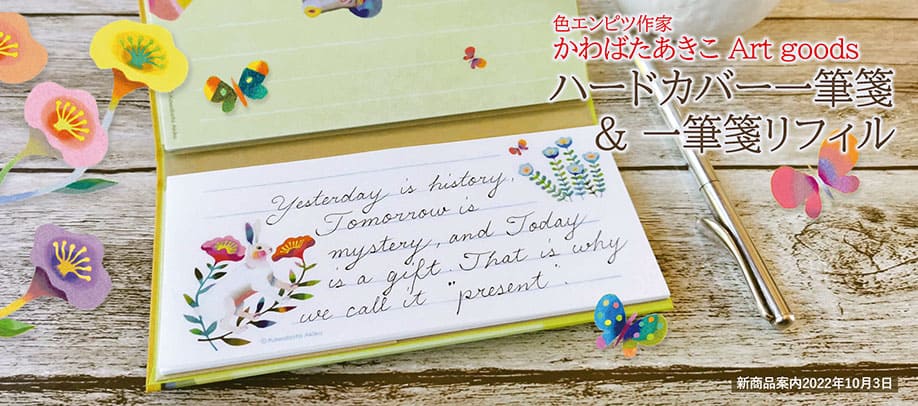 色エンピツ作家
かわばたあきこ Art goods
ハードカバー一筆箋
& 一筆箋リフィル
Yesterday is history,
Tomorrow is
mystery, and Today
is a gift. That is why
we call it "present".
© Kawabata Akiko
新商品案内2022年10月3日